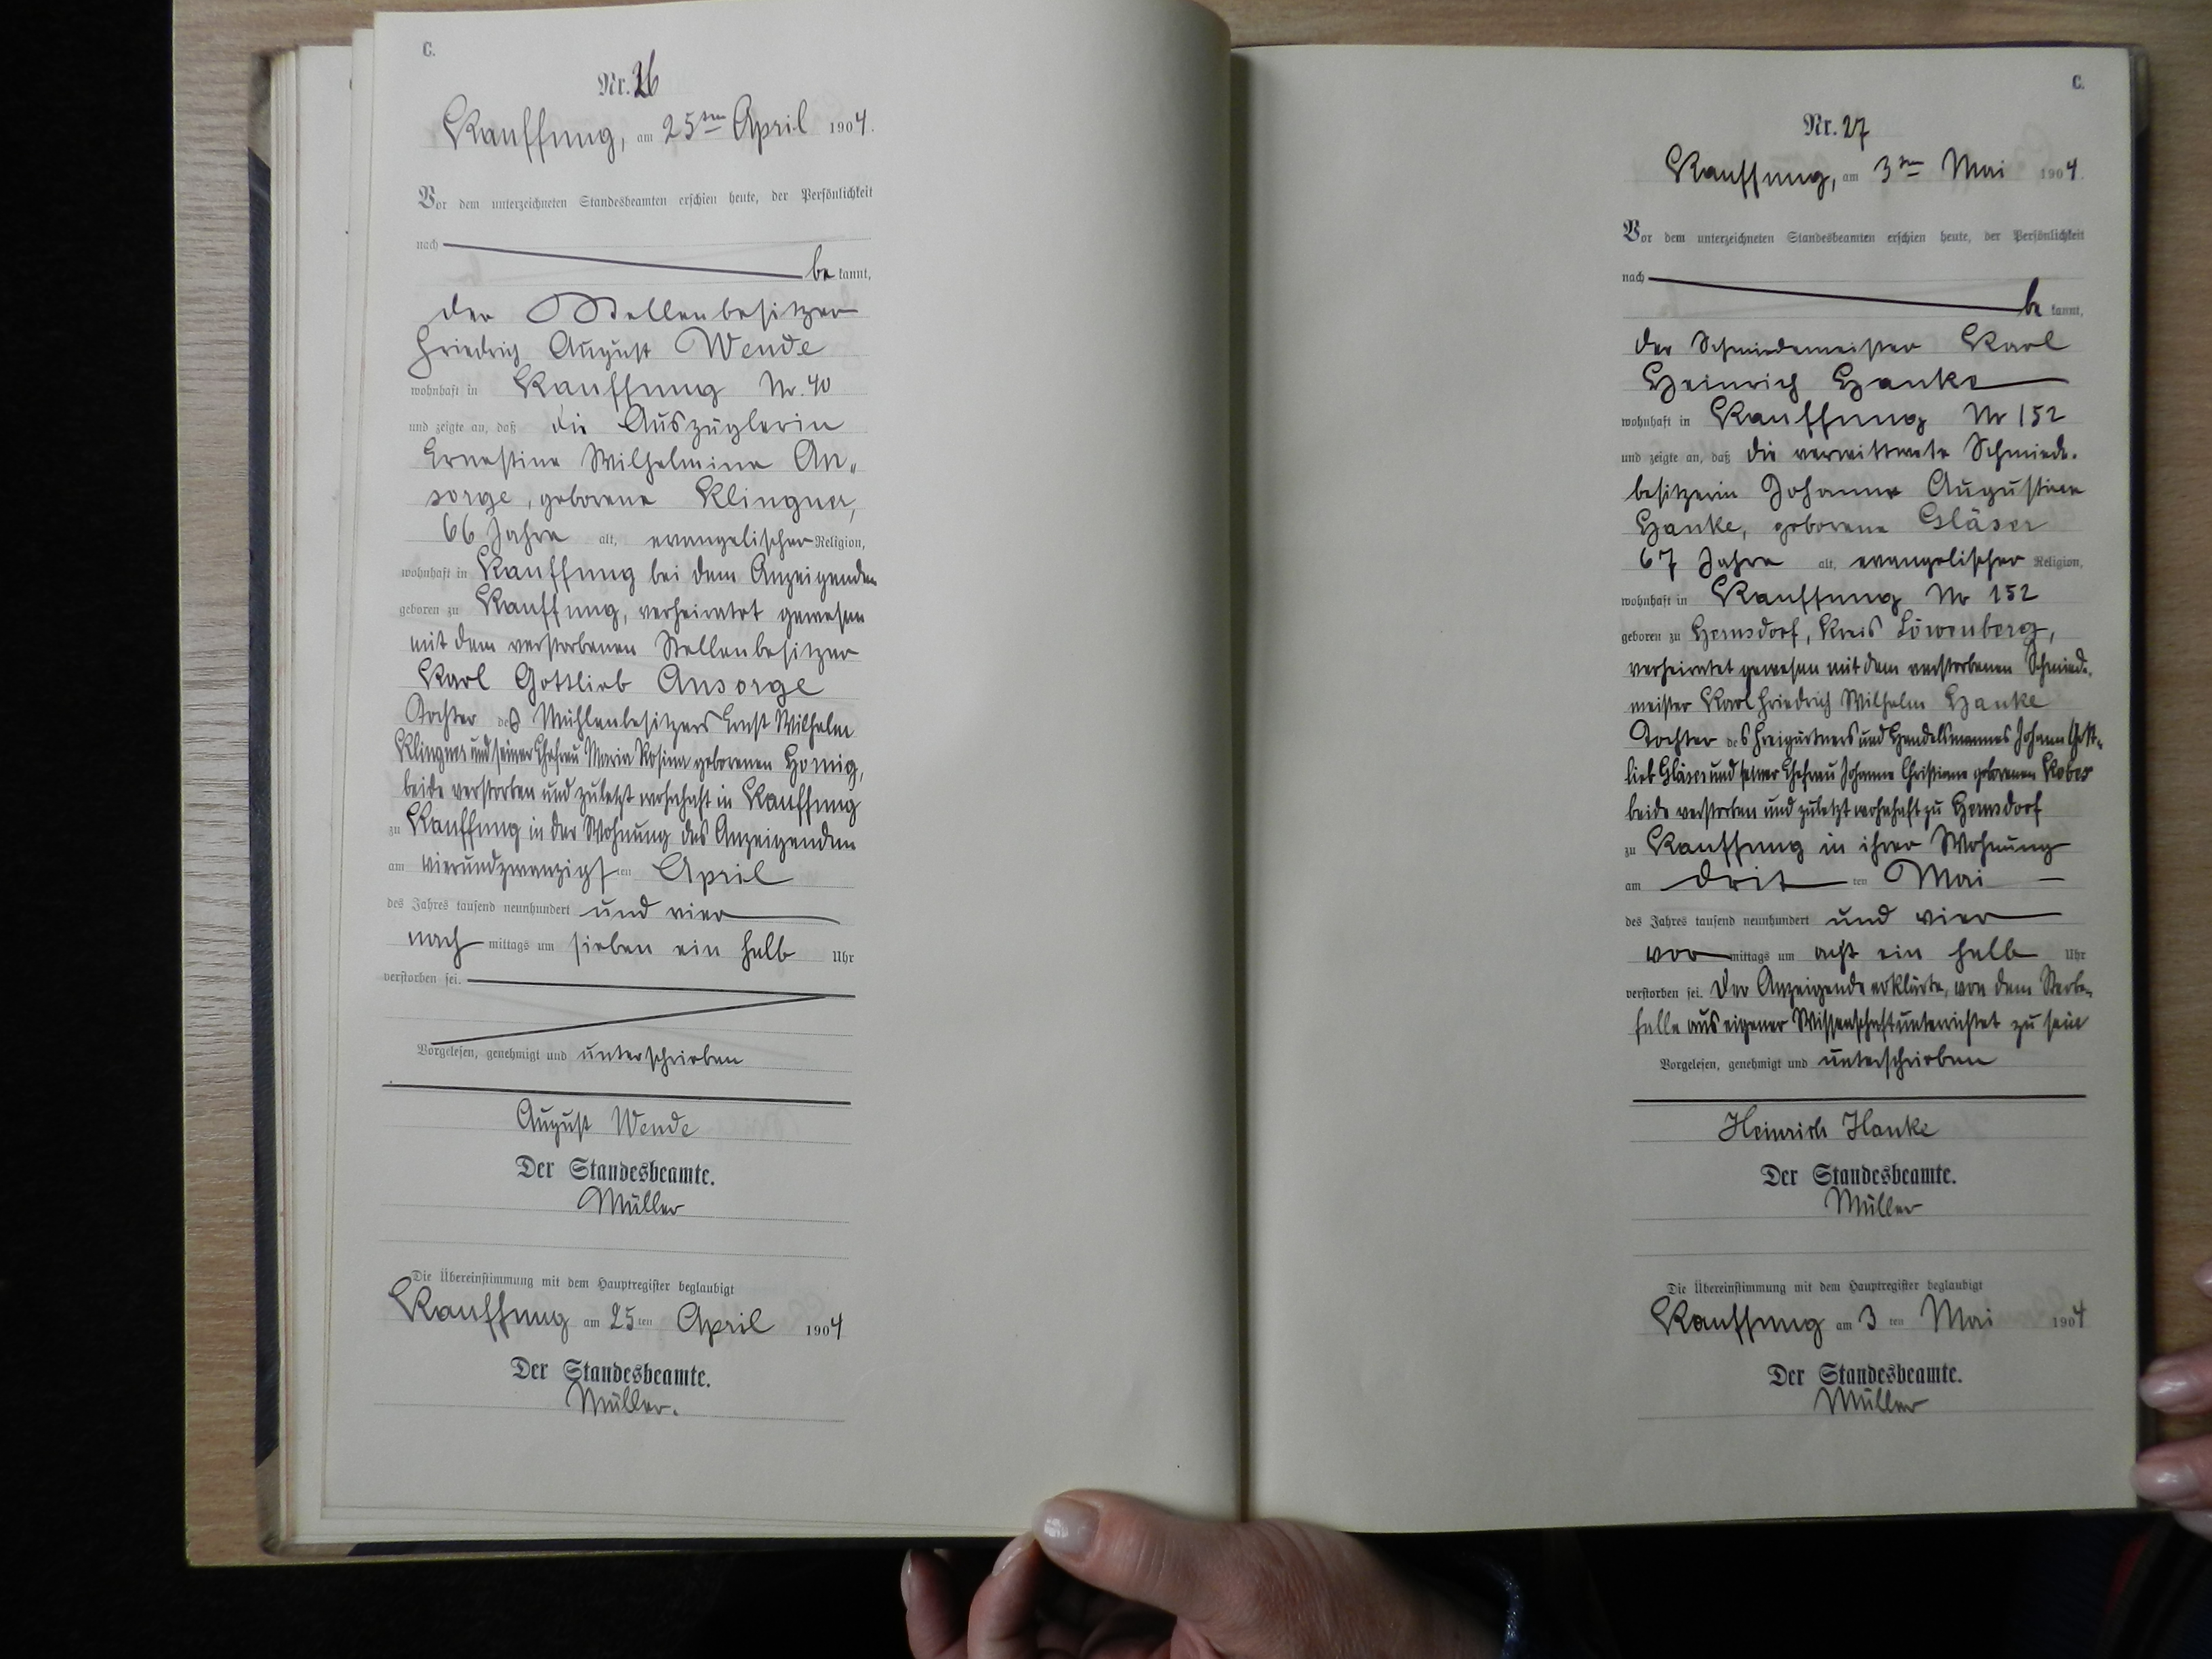 C.
Nr. 26
Kauffung, am 25ten April 1904.
Vor dem unterzeichneten Standesbeamten erschien heute, der Persönlichkeit
nach
bekannt,
der Stellenbesitzer
Friedrich August Wende
wohnhaft in Kauffung Nr. 40
und zeigte an, daß die Auszüglerin
Ernestine Wilhelmine An-
sorge, geborene Klingner,
66 Jahre alt, evangelischer Religion,
wohnhaft in Kauffung bei dem Anzeigenden
geboren zu Kauffung, verheiratet gewesen
mit dem verstorbenen Stellenbesitzer
Karl Gottlieb Ansorge
Tochter des Mühlenbesitzers Ernst Wilhelm
Klingner und seiner Ehefrau Maria Rosina geborenen Hornig,
beide verstorben und zuletzt wohnhaft in Kauffung
zu Kauffung in der Wohnung des Anzeigenden
am vierundzwanzigsten April
des Jahres tausend neunhundert und vier
nachmittags um sieben ein halb Uhr
verstorben sei.
Vorgelesen, genehmigt und unterschrieben
August Wende
Der Standesbeamte.
Müller
Die Übereinstimmung mit dem Hauptregister beglaubigt
Kauffung am 25ten April 1904
Der Standesbeamte.
Müller.
C.
Nr. 27
Kauffung, am 3ten Mai 1904.
Vor dem unterzeichneten Standesbeamten erschien heute, der Persönlichkeit
nach
bekannt,
der Schmiedemeister Karl
Heinrich Hanke
wohnhaft in Kauffung Nr 152
und zeigte an, daß die verwittwete Schmiede-
besitzerin Johanne Augustine
Hanke, geborene Gläser
67 Jahre alt, evangelischer Religion,
wohnhaft in Kauffung Nr 152
geboren zu Hernsdorf, Kreis Löwenberg,
verheiratet gewesen mit dem verstorbenen Schmiede-
meister Karl Friedrich Wilhelm Hanke
Tochter des Freigärtners und Handelsmannes Johann Gott-
lieb Gläser und seiner Ehefrau Johanne Christiane geborenen Kober
beide verstorben und zuletzt wohnhaft zu Hernsdorf
zu Kauffung in ihrer Wohnung
am dritten Mai
des Jahres tausend neunhundert und vier
vormittags um acht ein halb Uhr
verstorben sei. Der Anzeigende erklärte, von dem Sterbe-
falle aus eigener Wissenschaft unterrichtet zu sein
Vorgelesen, genehmigt und unterschrieben
Heinrich Hanke
Der Standesbeamte.
Müller
Die Übereinstimmung mit dem Hauptregister beglaubigt
Kauffung am 3ten Mai 1904
Der Standesbeamte.
Müller